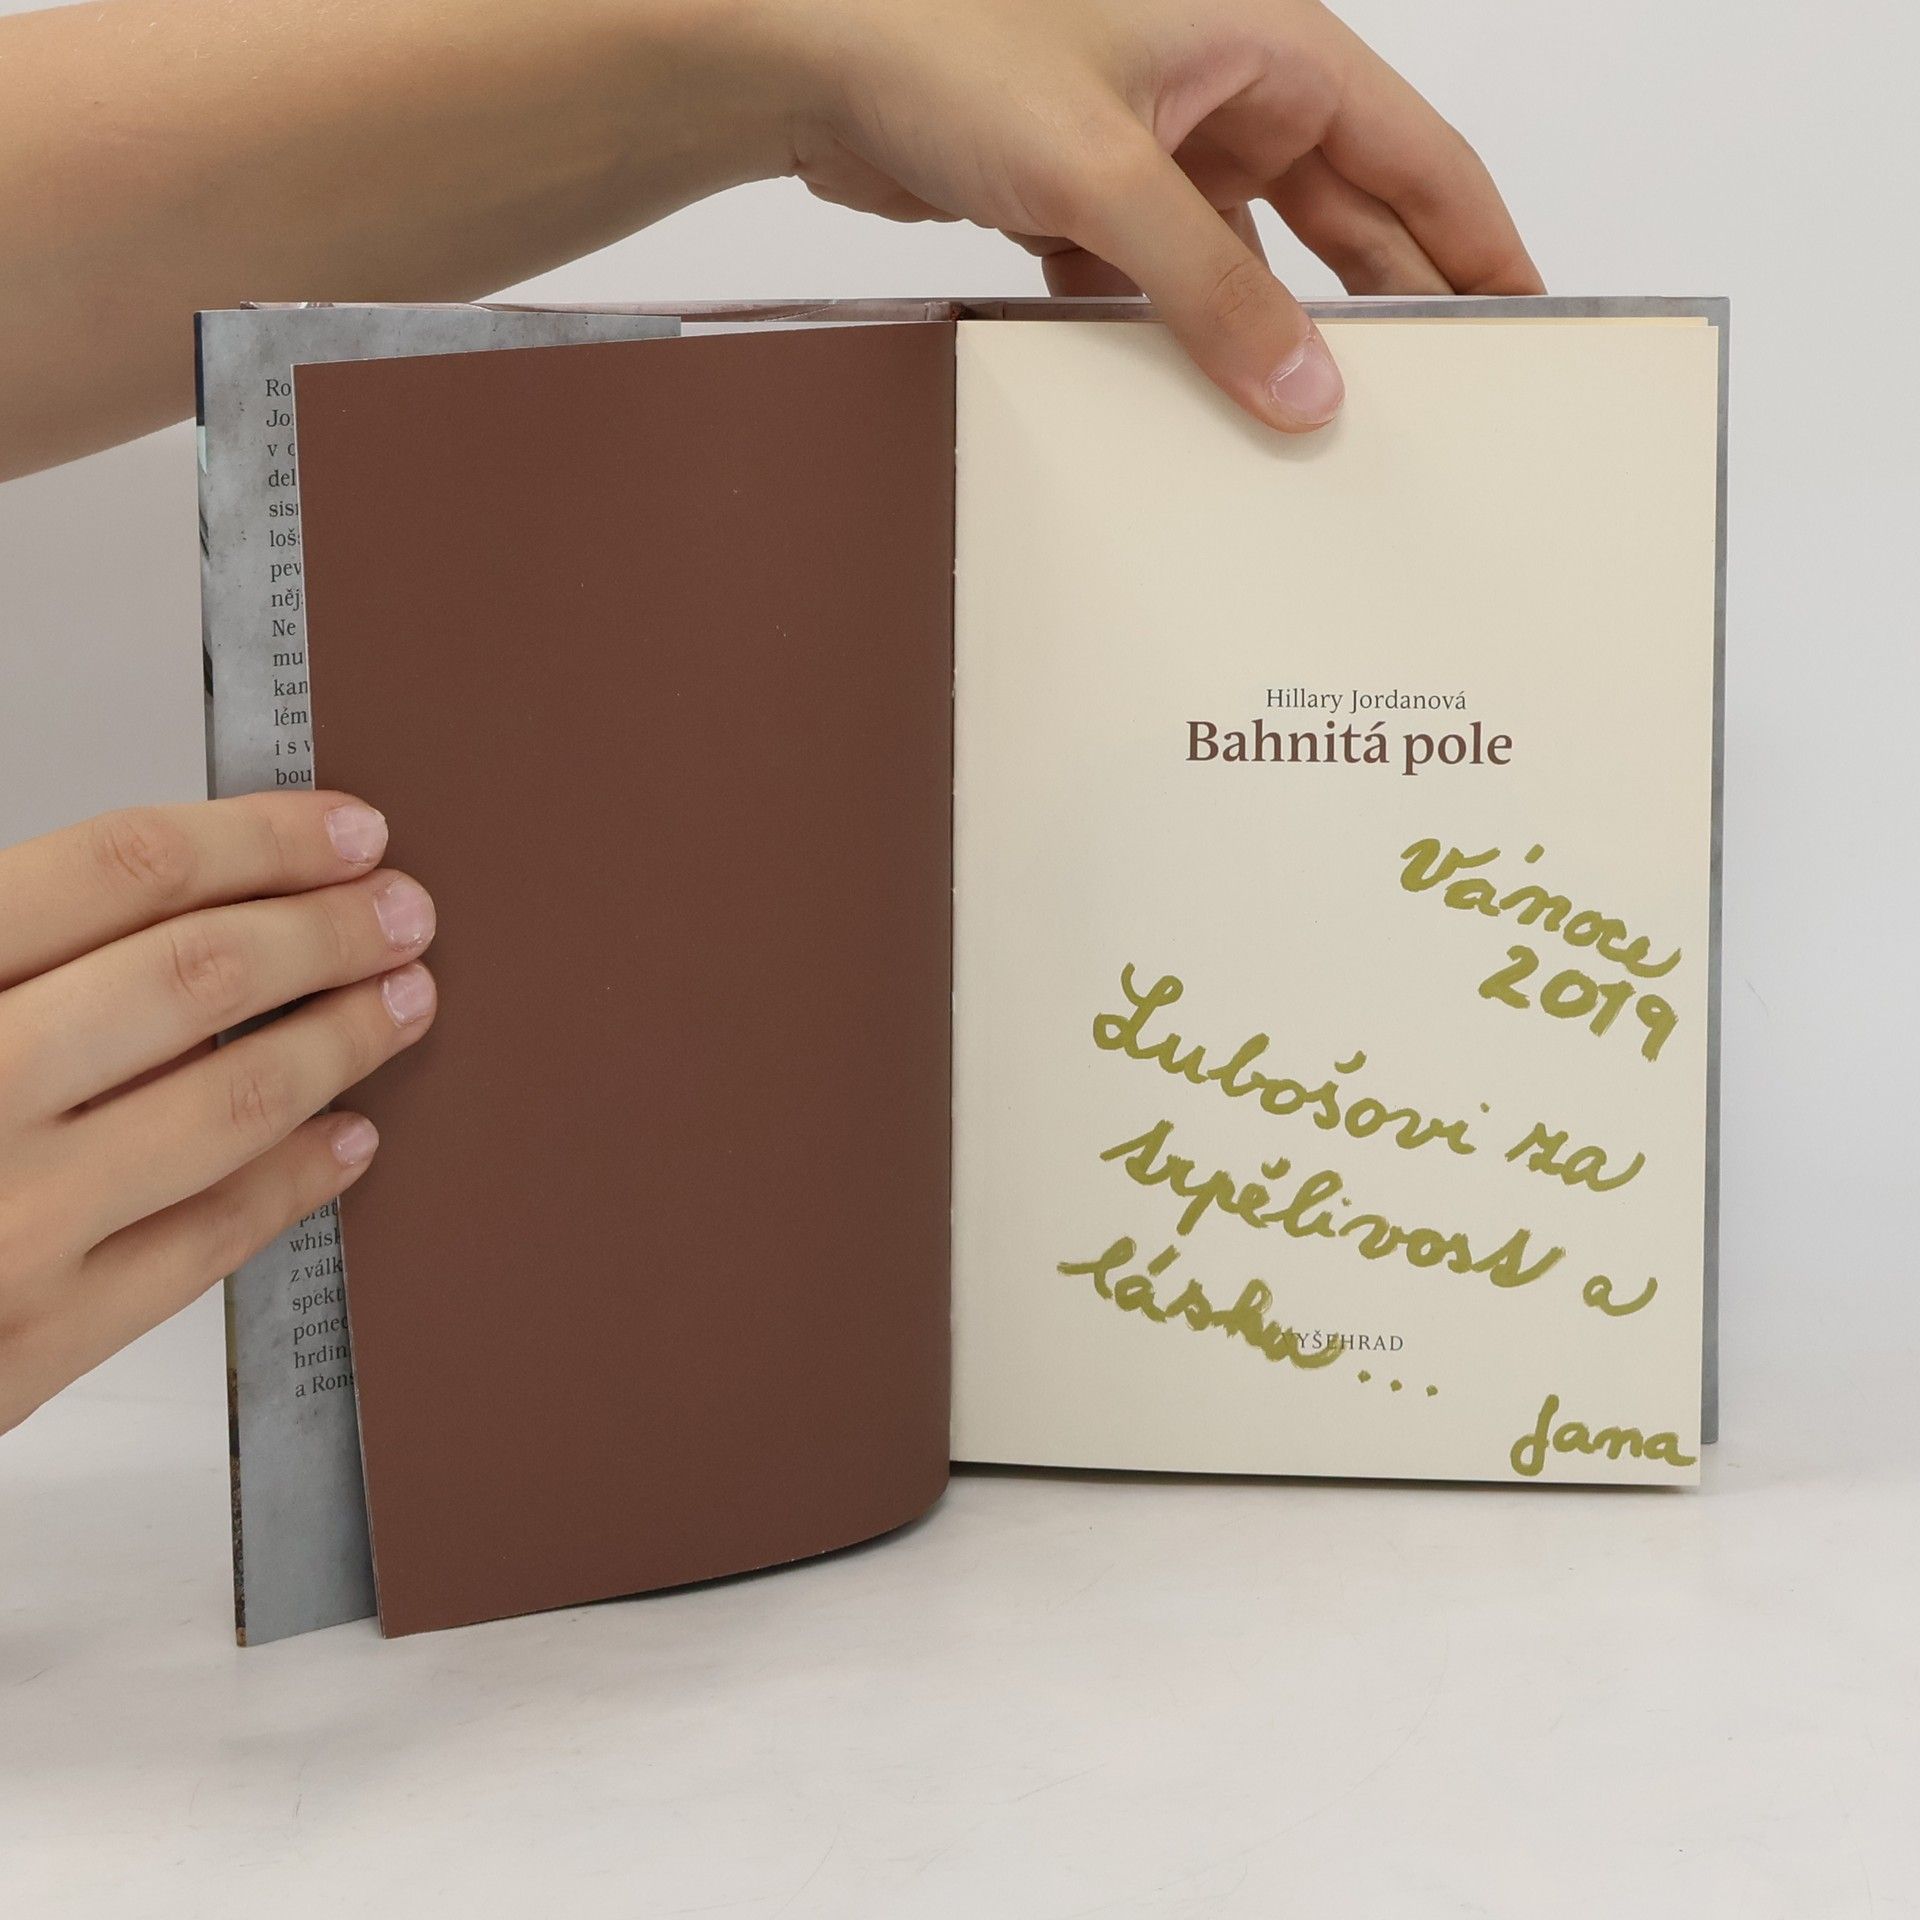 Ro
Jo
v o
del
sis
loš
pev
něj
Ne
mu
kan
lém
i s v
bou
prat
whisk
z válk
spekt
poned
hrdin
a Rons
Hillary Jordanová
Bahnitá pole
Vánoce
2019
Lubošovi za
trpělivost a
lásku...
VYŠEHRAD
Jana